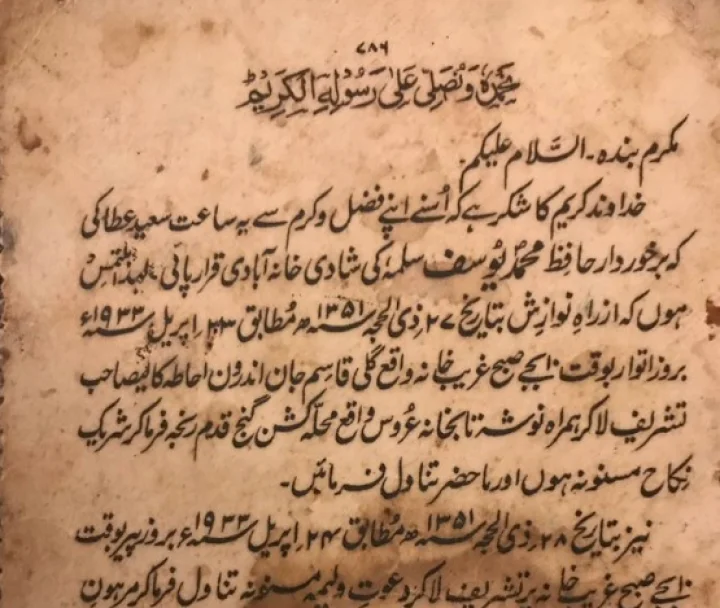 ۷۸۶
نحمدہٗ وَنُصَلِّی عَلیٰ رَسُوْلِهِ الْکَرِیْمْ
مکرم بندہ۔ السَّلام علیکم۔
خداوند کریم کا شکر ہے کہ اُسنے اپنے فضل و کرم سے یہ ساعت سعید عطا کی
کہ برخوردار حافظ محمدؐ یُوسف سلمہٗ کی شادی خانہ آبادی قرار پائی لہذا ملتمس
ہوں کہ از راہِ نوازش بتاریخ ۲۷؍ ذی الحجہ ۱۳۵۱ھ مُطابق ۲۳؍ اپریل ۱۹۳۳ء
بروز اتوار بوقت ۱۰ بجے صبح غریب خانہ واقع گلی قاسِم جان اندرُون احاطہ کالیصاحب
تشریف لا کر ہمراہ نوشہ تا بخانہ عرُوس واقع محلّہ کشن گنج قدم رنجہ فرما کر شریک
نِکاح مسنونہ ہوں اور ماحضر تناول فرمائیں۔
نیز بتاریخ ۲۸؍ ذی الحجہ ۱۳۵۱ھ مُطابق ۲۴؍ اپریل ۱۹۳۳ء بروز پیر بوقت
۱۰ بجے صبح غریب خانہ پر تشریف لا کر دعوتِ ولیمہ مسنونہ تناول فرما کر مرہونِ